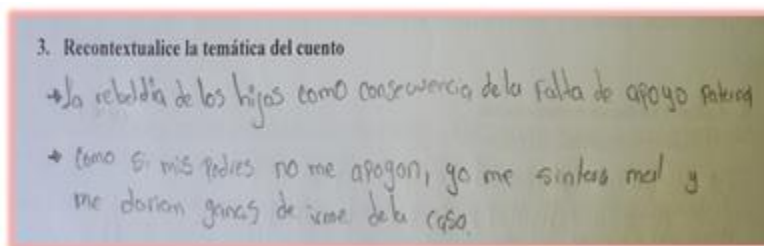 3. Recontextualice la temática del cuento
→ la rebeldía de los hijos como consecuencia de la falta de apoyo paterno
→ como si mis padres no me apoyan, yo me sintiera mal y
me darian ganas de irme de la casa.